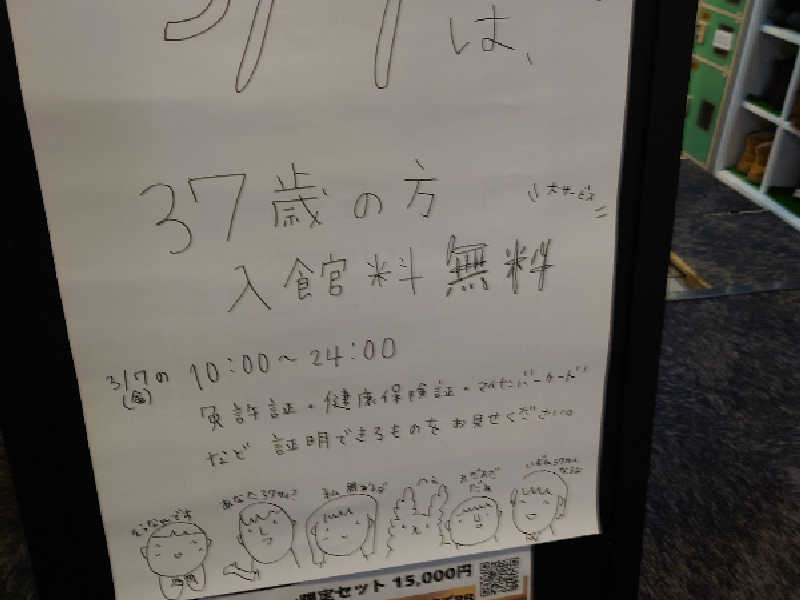 3/7は、
37歳の方
大サービス
入館料 無料
3/7の 10:00〜24:00
(金)
免許証・健康保険証・マイナンバーカード
など 証明できるものをお見せください。
あなた37さい?
限定セット 15,000円